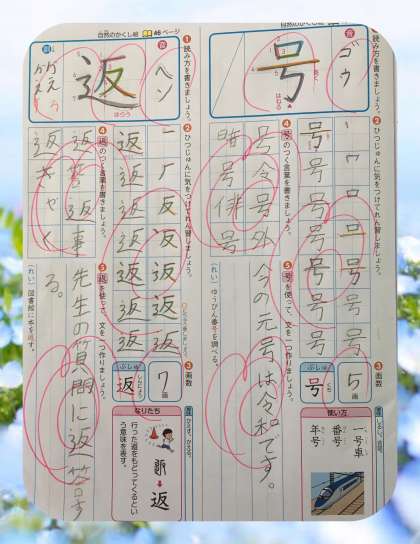 自然のかくし絵 46ページ
号
音
ゴウ
はねる
1 読み方を書きましょう。
2 ひつじゅんに気をつけてれん習しましょう。
号 号 号 号 号 号
4 号のつく言葉を書きましょう。
号令
号外
暗号
俳号
5 号を使って、文を一つ作りましょう。
(れい)ゆうびん番号を調べる。
今の元号は令和です。
3 画数
5画
ぶしゅ
号
くち
使い方
一号車
番号
年号
自然のかくし絵 46ページ
返
音
ヘン
訓
はらう
1 読み方を書きましょう。
2 ひつじゅんに気をつけてれん習しましょう。
返 返 返 返 返
4 返のつく言葉を書きましょう。
返答
返事
返きゃく
5 返を使って、文を一つ作りましょう。
(れい)図書館に本を返す。
先生の質問に返答す
る。
3 画数
7画
ぶしゅ
返
なりたち
行った道をもどってくるという意味を表す。
返